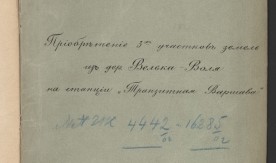 Пріобрѣтеніе 3хъ участковъ земель
изъ дер Велька-Воля
на станціи „Транзитная Варшава"
4442 - 16285